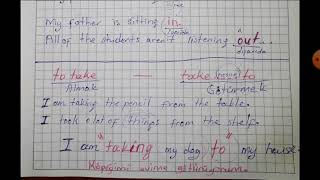 My father is sitting in.
İçeride
All of the students aren't listening out.
dışarıda
to take — take (smth) to
Almak Götürmek
I am taking the pencil from the table.
I took alot of things from the shelf.
I am "taking my dog to" my house.
Köpeğimi evime götürüyorum.